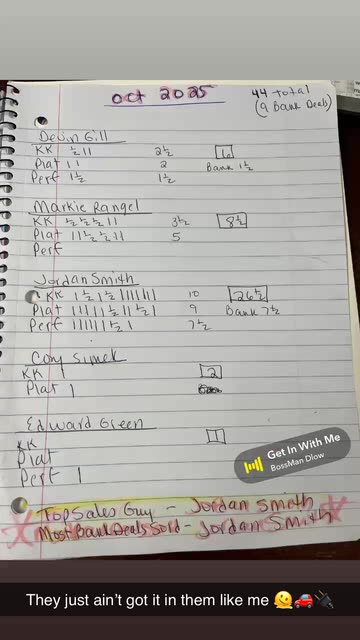 Oct 2025
44 Total
(9 Bank Deals)
Devin Gill
KK ½ 1 1 2½ 6
Plat 1 1 2 Bank 1½
Perf 1½ 1½
Markie Rangel
KK ½ ½ ½ 1 1 3½ 8½
Plat 1 1 ½ ½ 1 1 5
Perf
Jordan Smith
KK 1 ½ 1 ½ 1 1 1 1 1 1 1 10 26½
Plat 1 1 1 1 1 ½ 1 1 ½ 1 9 Bank 7½
Perf 1 1 1 1 1 1 ½ 1 7½
Cory Simek
KK 1 2
Plat 1
Edward Green
KK 1
Plat
Perf 1
Get In With Me
BossMan Dlow
Top Sales Guy - Jordan Smith
Most Bank Deals Sold - Jordan Smith
They just ain't got it in them like me 🫠🚗🔌